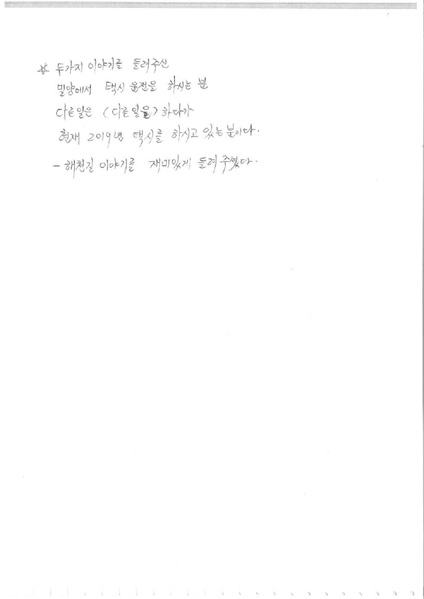 * 두가지 이야기를 들려주신
밀양에서 택시 운전을 하시는 분
다른일은 (다른일을) 하다가
현재 2019년 택시를 하시고 있는 분이다.
- 해천길 이야기를 재미있게 들려 주었다.